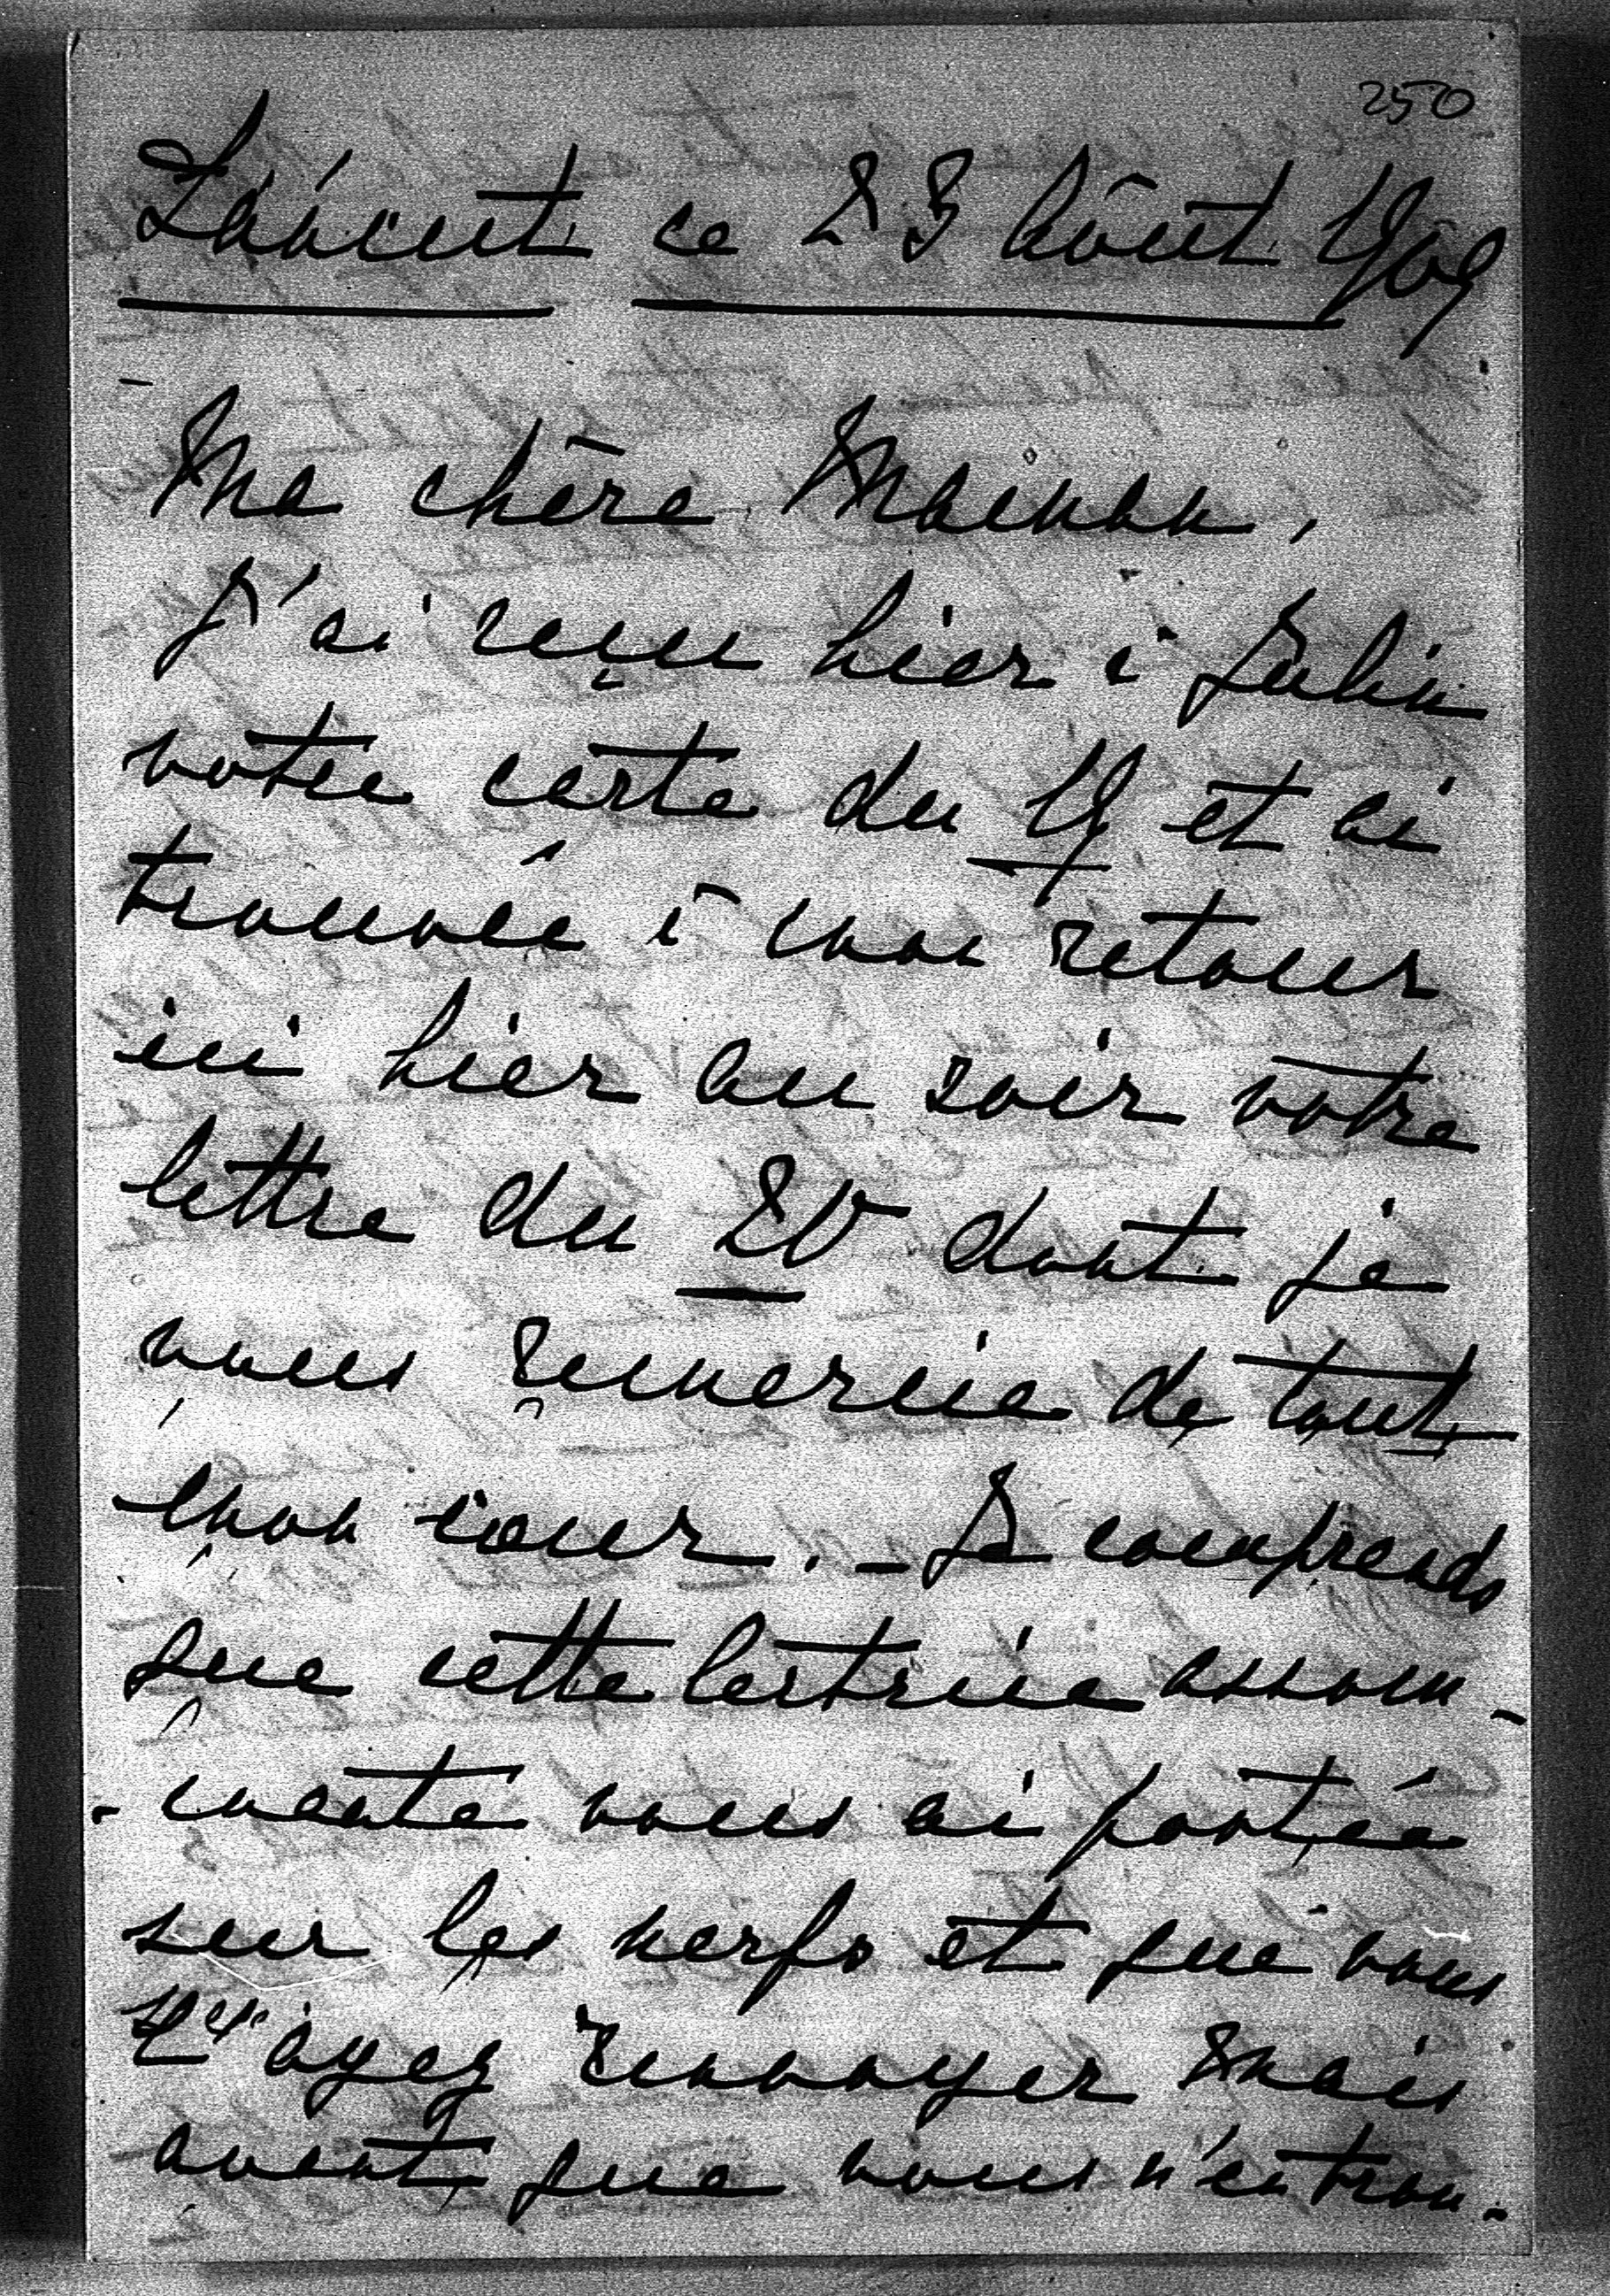 250
Láncut ce 23 Août 1909
Ma chère Maman,
J'ai reçu hier à Lublin
votre carte du 19 et ai
trouvée à mon retour
ici hier au soir votre
lettre du 20 dont je
vous remercie de tout
mon cœur. – Je comprends
que cette assom-
-mante vous ai portée
sur les nerfs et que vous
l'ayez renvoyer mais
avant que vous n'en trou-